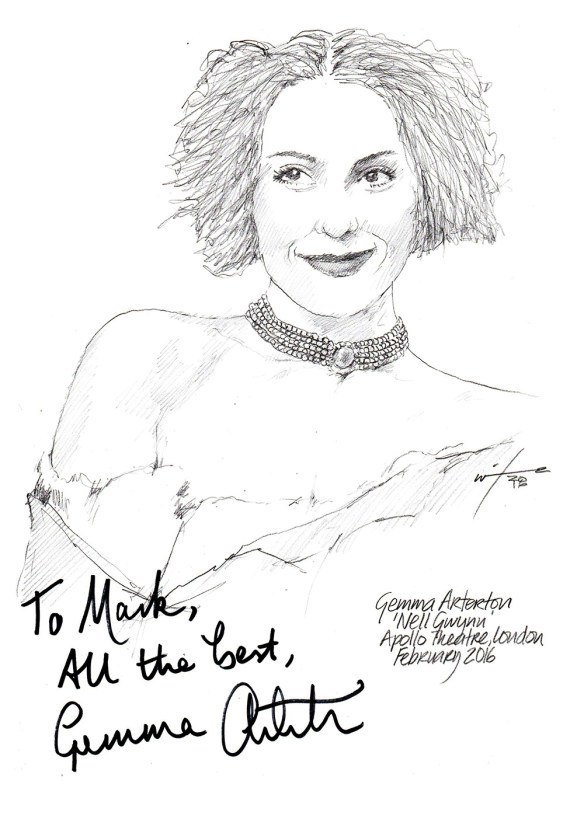 To Mark,
All the best,
Gemma Arterton
Gemma Arterton
'Nell Gwynn'
Apollo Theatre, London
February 2016